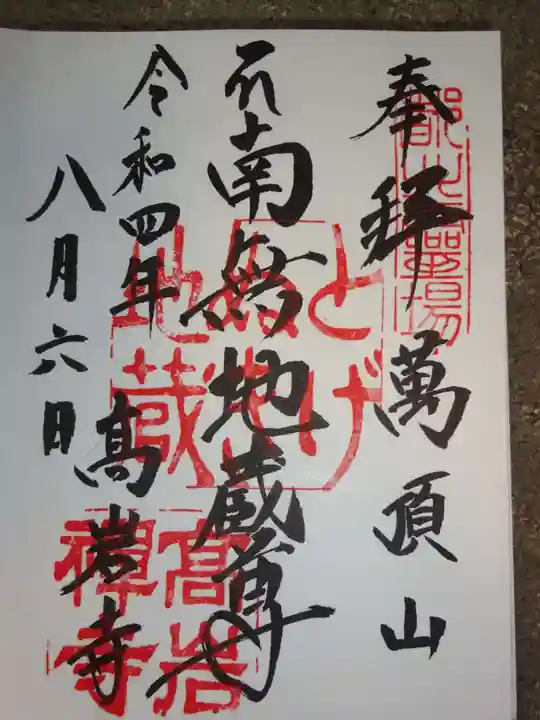 奉拝 萬頂山
南無地蔵尊
高岩寺
令和四年
八月六日
とげぬき地蔵
高岩禅寺